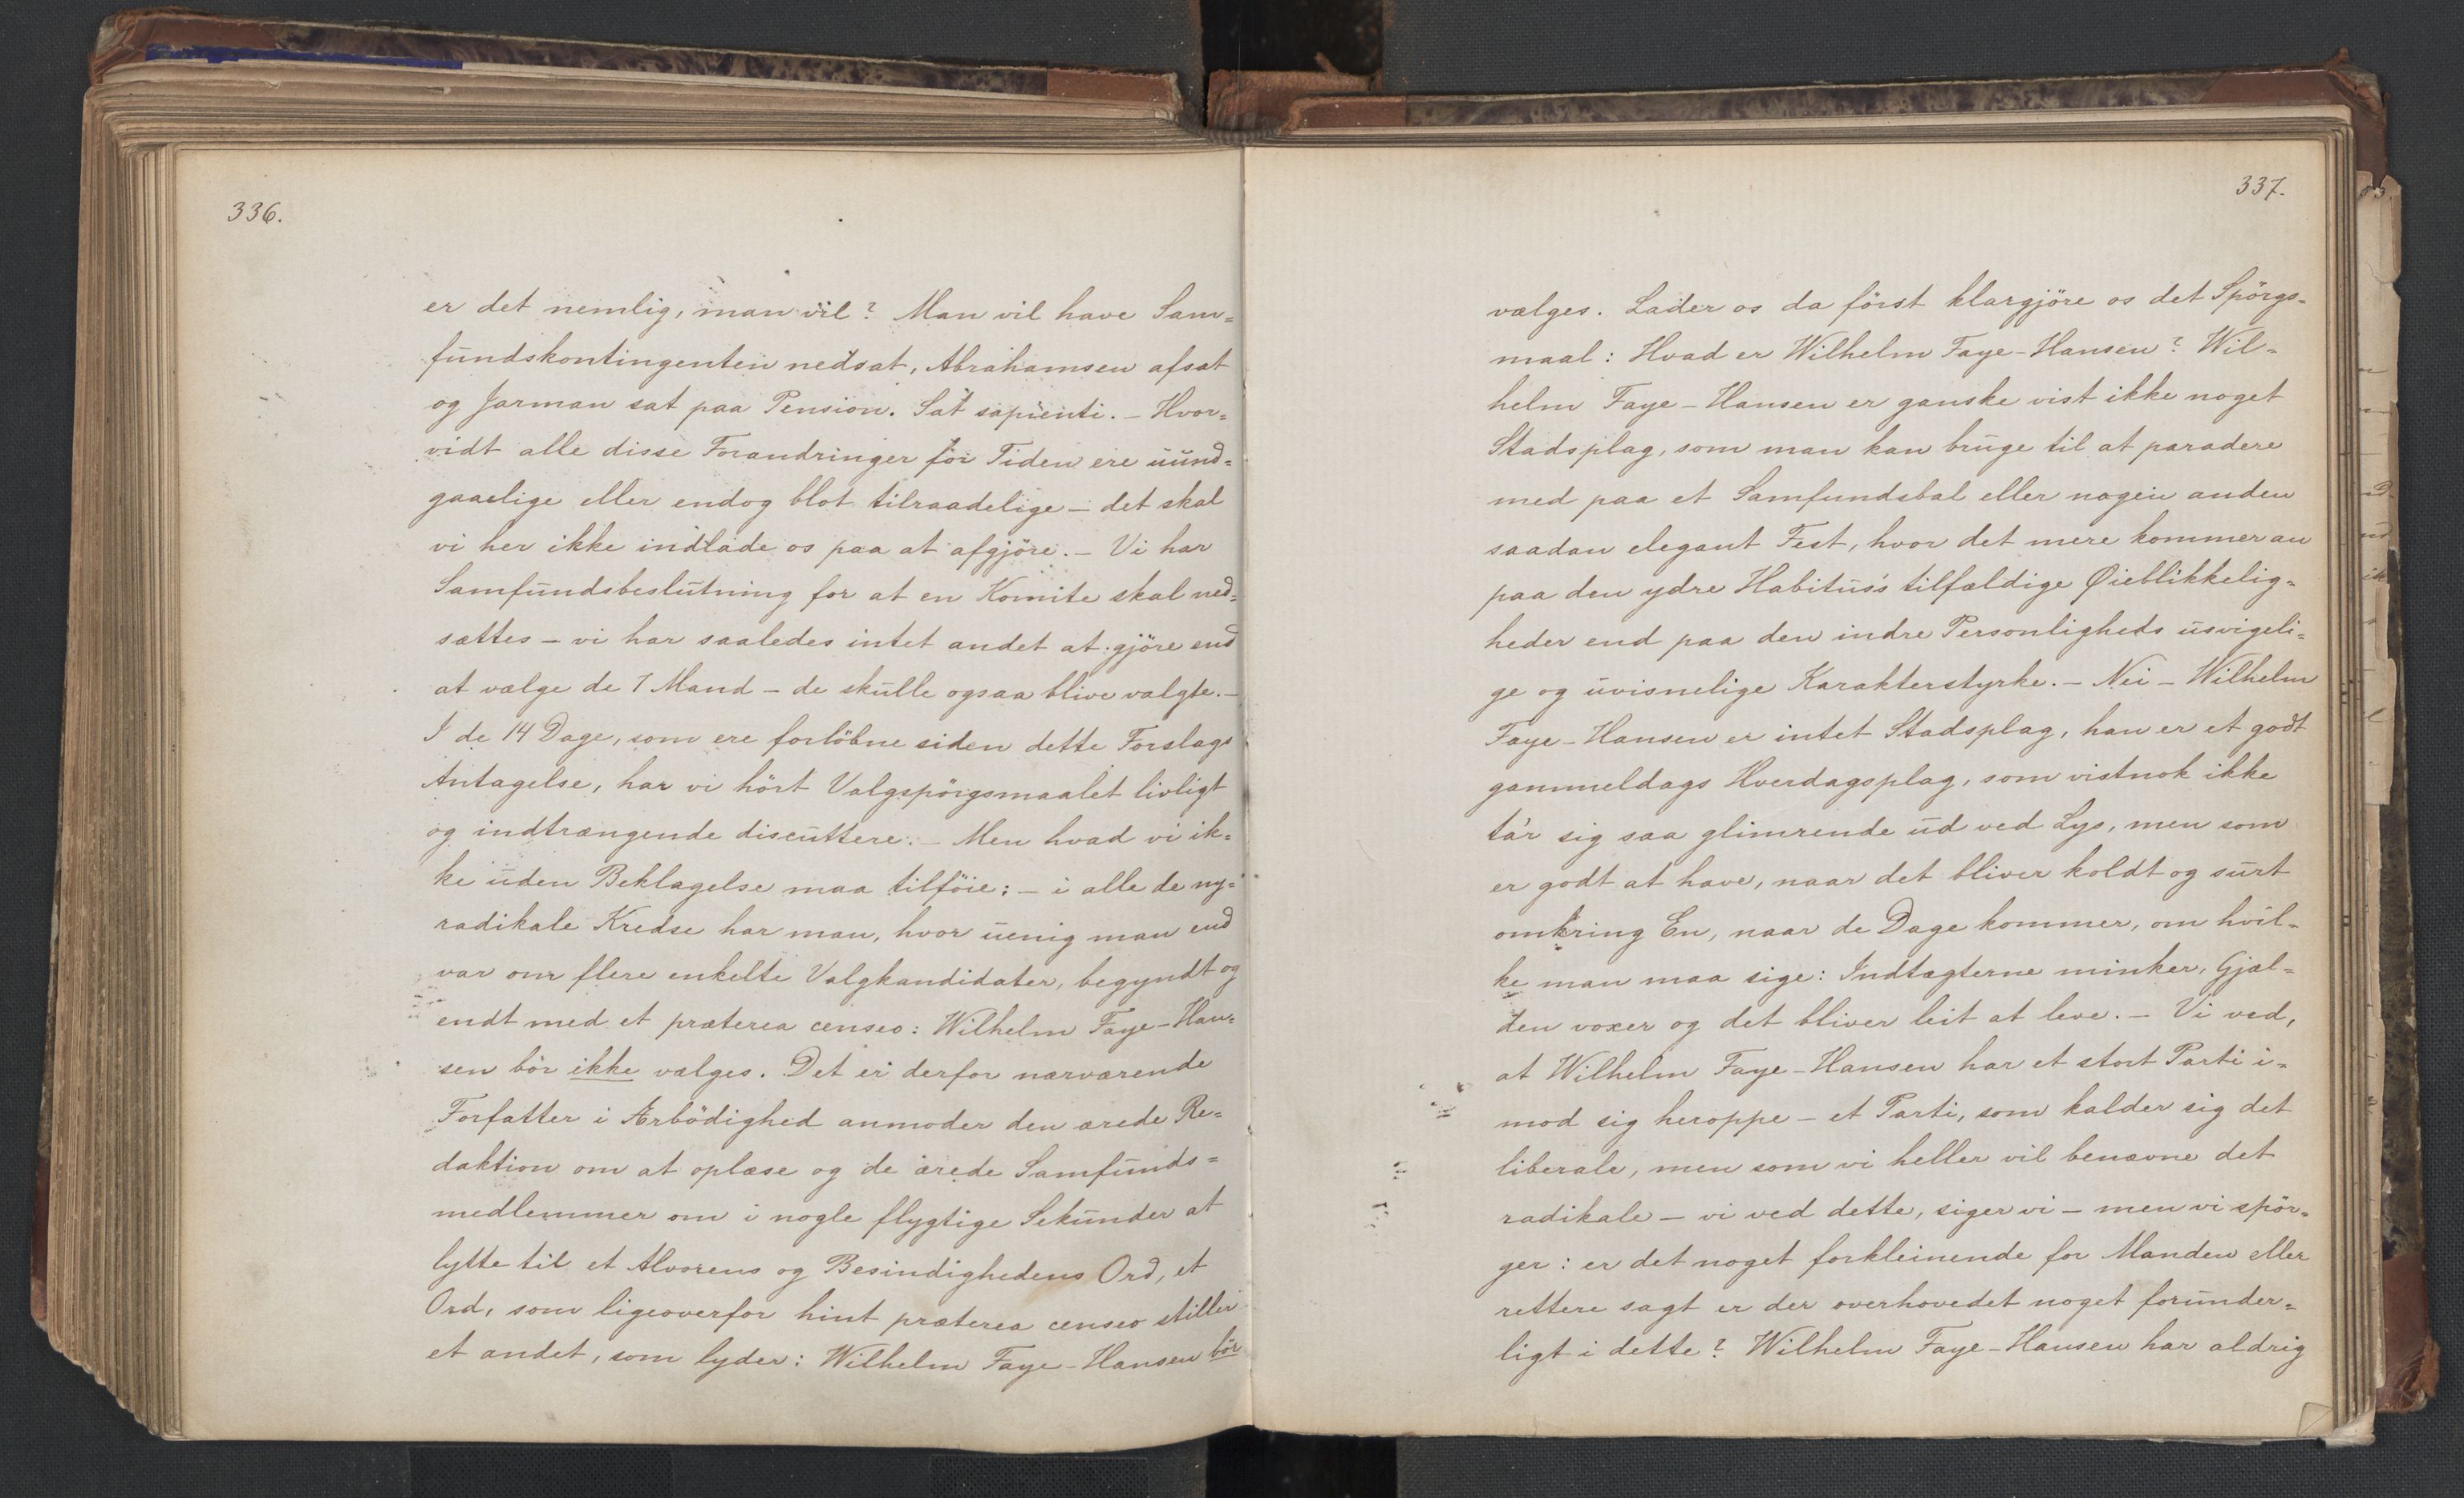 336.
er det nemlig, man vil? Man vil have Sam=
fundskontingenten nedsat, Abrahamsen afsat
og Jarman sat paa Pension. Sat sapienti. – Hvor=
vidt alle disse Forandringer for Tiden ere uund=
gaaelige eller endog blot tilraadelige – det skal
vi her ikke indlade os paa at afgjöre. – Vi har
Samfundsbeslutning for at en Komite skal ned=
sættes – vi har saaledes intet andet at gjöre end
at vælge de 7 Mand – de skulle ogsaa blive valgte. –
I de 14 Dage, som ere forlöbne siden dette Forslags
Antagelse, har vi hört Valgspörgsmaalet livligt
og indtrængende discuttere. – Men hvad vi ik=
ke uden Beklagelse maa tilföie: – i alle de ny=
radikale Kredse har man, hvor uenig man end
var om flere enkelte Valgkandidater, begyndt og
endt med et præterea censeo: Wilhelm Faye-Han=
sen bör ikke vælges. Det er derfor nærværende
Forfatter i Ærbödighed anmoder den ærede Re=
daktion om at oplæse og de ærede Samfunds=
medlemmer om i nogle flygtige Sekunder at
lytte til et Alvorens og Besindighedens Ord, et
Ord, som ligeoverfor hint præterea censeo stiller
et andet, som lyder: Wilhelm Faye-Hansen bör
337.
vælges. Lader os da först klargjöre os det Spörgs=
maal: Hvad er Wilhelm Faye-Hansen? Wil=
helm Faye-Hansen er ganske vist ikke noget
Stadsplag, som man kan bruge til at paradere
med paa et Samfundsbal eller nogen anden
saadan elegant Fest, hvor det mere kommer an
paa den ydre Habitus's tilfældige Øieblikkelig=
heder end paa den indre Personligheds usvigeli=
ge og uvisnelige Karakterstyrke. – Nei – Wilhelm
Faye-Hansen er intet Stadsplag, han er et godt
gammeldags Hverdagsplag, som vistnok ikke
ta'r sig saa glimrende ud ved Lys, men som
er godt at have, naar det bliver koldt og surt
omkring En, naar de Dage kommer, om hvil=
ke man maa sige: Indtægterne minker, Gjæl=
den voxer og det bliver leit at leve. – Vi ved,
at Wilhelm Faye-Hansen har et stort Parti i=
mod sig heroppe – et Parti, som kalder sig det
liberale, men som vi heller vil benævne det
radikale – vi ved dette, siger vi – men vi spör=
ger: er det noget forkleinende for Manden eller
rettere sagt er der overhovedet noget forunder=
ligt i dette? Wilhelm Faye-Hansen har aldrig